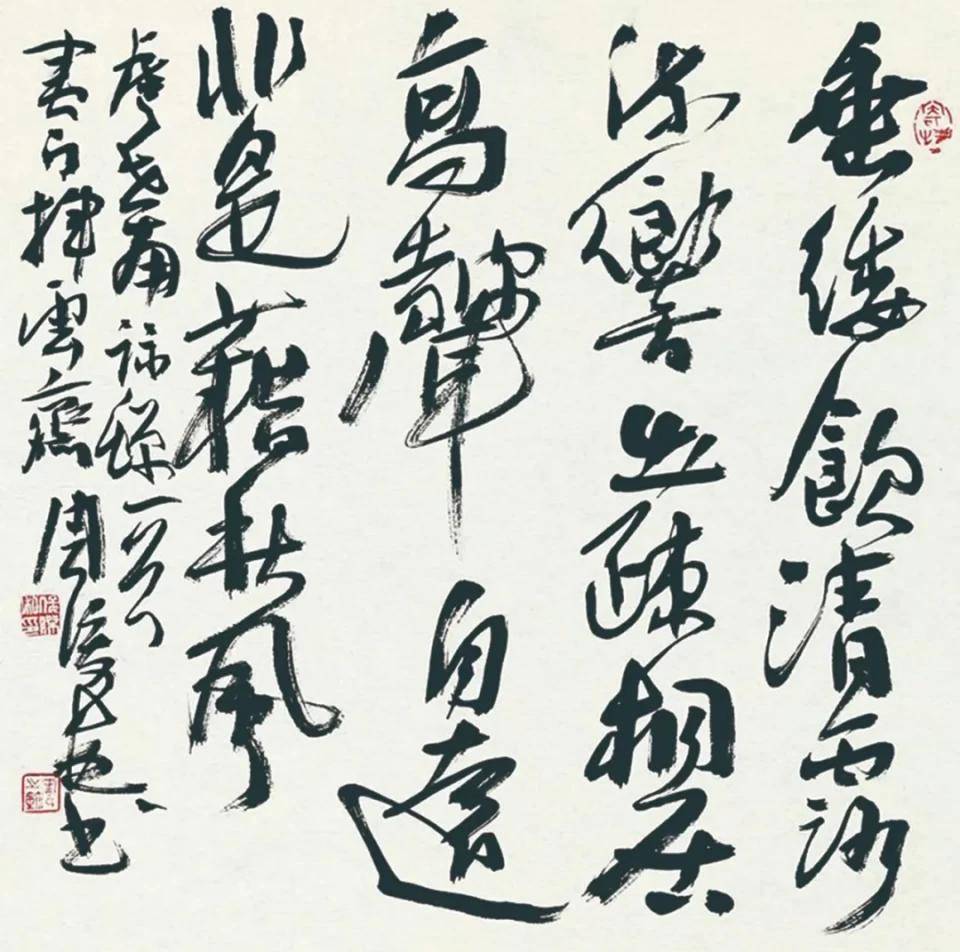 垂緌飲清露
流響出疏桐居
高聲自遠
非是藉秋風
虞世南詠蟬一首
書揮雲齋周俊杰书